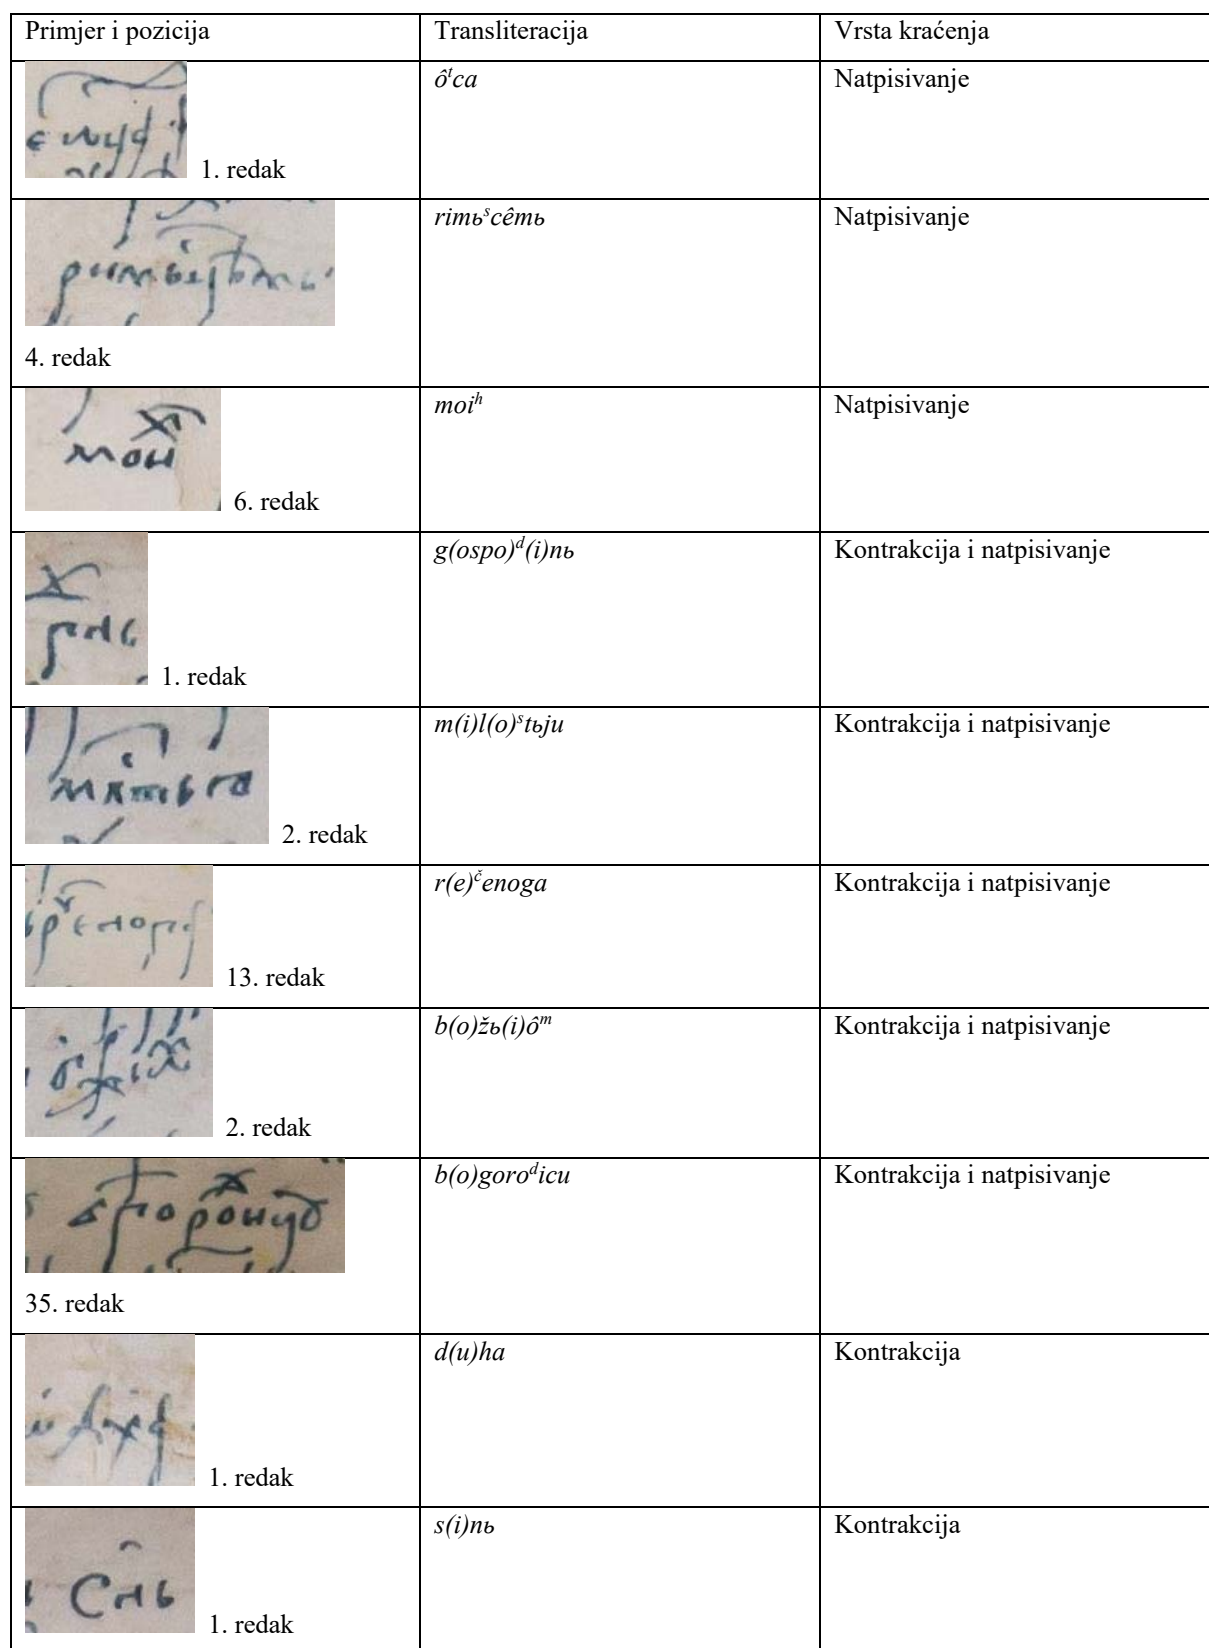 Primjer i pozicija Transliteracija Vrsta kraćenja
1. redak ôᵗca Natpisivanje
4. redak rimьˢcêmь Natpisivanje
6. redak moiʰ Natpisivanje
1. redak g(ospo)ᵈ(i)nь Kontrakcija i natpisivanje
2. redak m(i)l(o)ˢtьju Kontrakcija i natpisivanje
13. redak r(e)č̌enoga Kontrakcija i natpisivanje
2. redak b(o)žь(i)ôᵐ Kontrakcija i natpisivanje
35. redak b(o)goroᵈicu Kontrakcija i natpisivanje
1. redak d(u)ha Kontrakcija
1. redak s(i)nь Kontrakcija